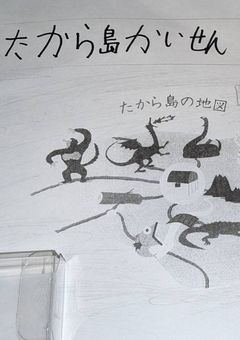 たから島かいせん
たから島の地図